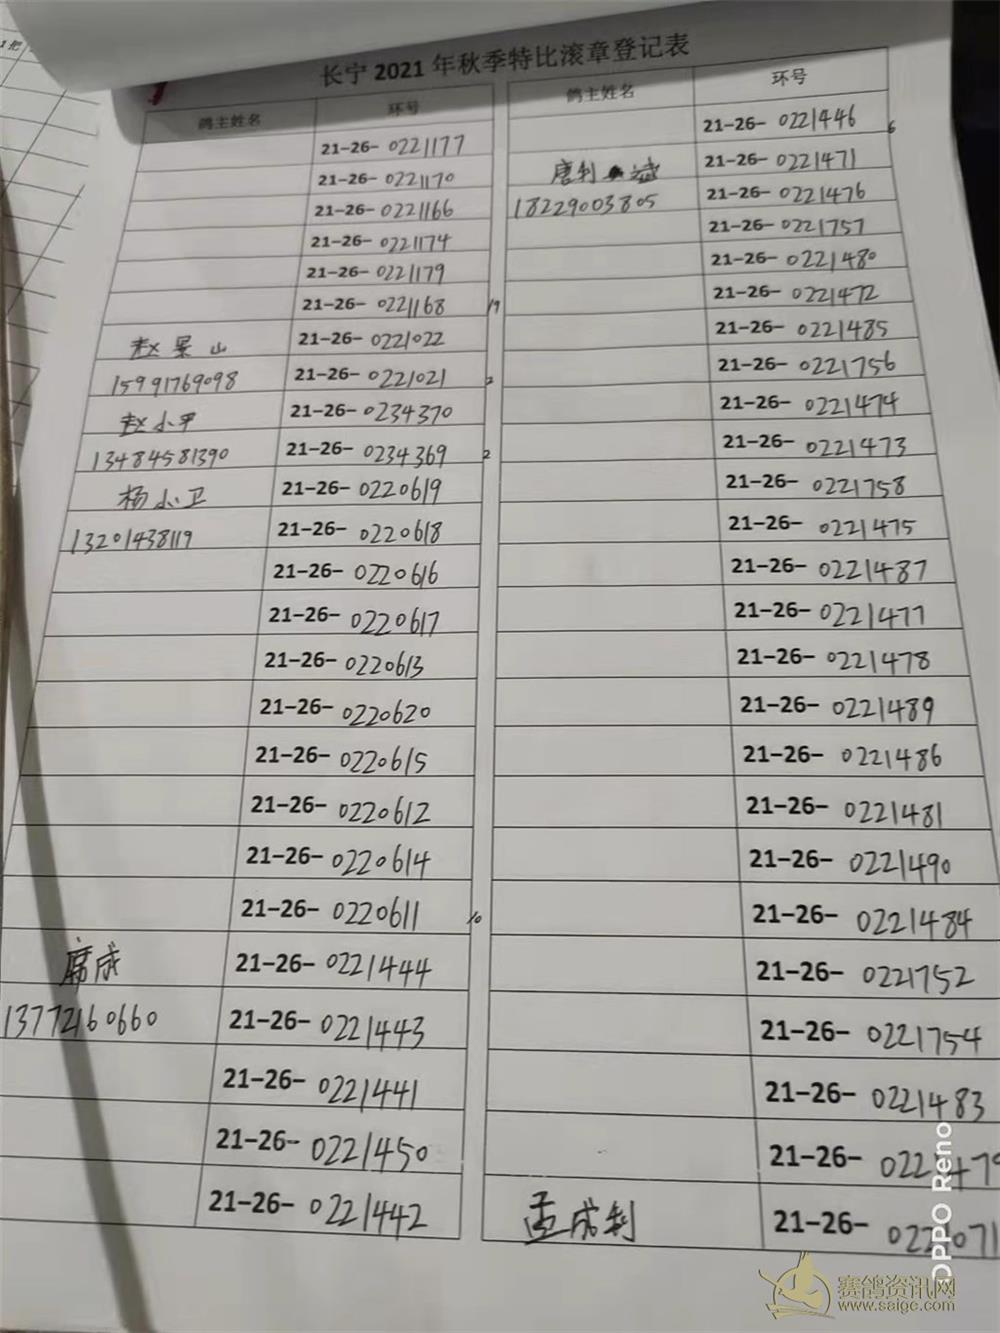 长宁 2021 年秋季特比滚章登记表
鸽主姓名 环号
21-26- 0221177
21-26- 0221170
21-26- 0221166
21-26- 0221174
21-26- 0221179
21-26- 0221168 19
赵景山 21-26- 0221022
15991769098 21-26- 0221021 2
赵小平 21-26- 0234370
13484581390 21-26- 0234369 2
杨小卫 21-26- 0220619
13201438119 21-26- 0220618
21-26- 0220616
21-26- 0220617
21-26- 0220613
21-26- 0220620
21-26- 0220615
21-26- 0220612
21-26- 0220614
21-26- 0220611 10
席成 21-26- 0221444
13772160660 21-26- 0221443
21-26- 0221441
21-26- 0221450
21-26- 0221442
鸽主姓名 环号
21-26- 0221446 6
唐利斌 21-26- 0221471
18229003805 21-26- 0221476
21-26- 0221757
21-26- 0221480
21-26- 0221472
21-26- 0221485
21-26- 0221756
21-26- 0221474
21-26- 0221473
21-26- 0221758
21-26- 0221475
21-26- 0221487
21-26- 0221477
21-26- 0221478
21-26- 0221489
21-26- 0221486
21-26- 0221481
21-26- 0221490
21-26- 0221484
21-26- 0221752
21-26- 0221754
21-26- 0221483
21-26-
孟成利 21-26-
OPPO Reno
赛鸽资讯网
www.saige.com